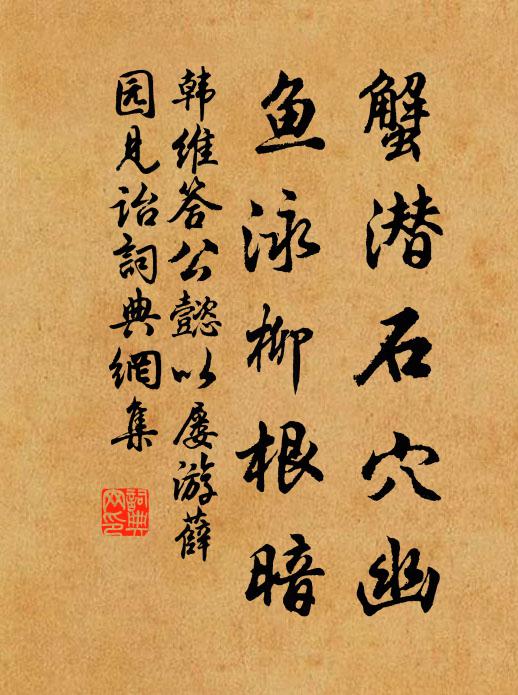 蟹潜石穴幽
鱼泳柳根暗
韩维答公懿以屡游薛
园见诒詞典網集
詞典
网印